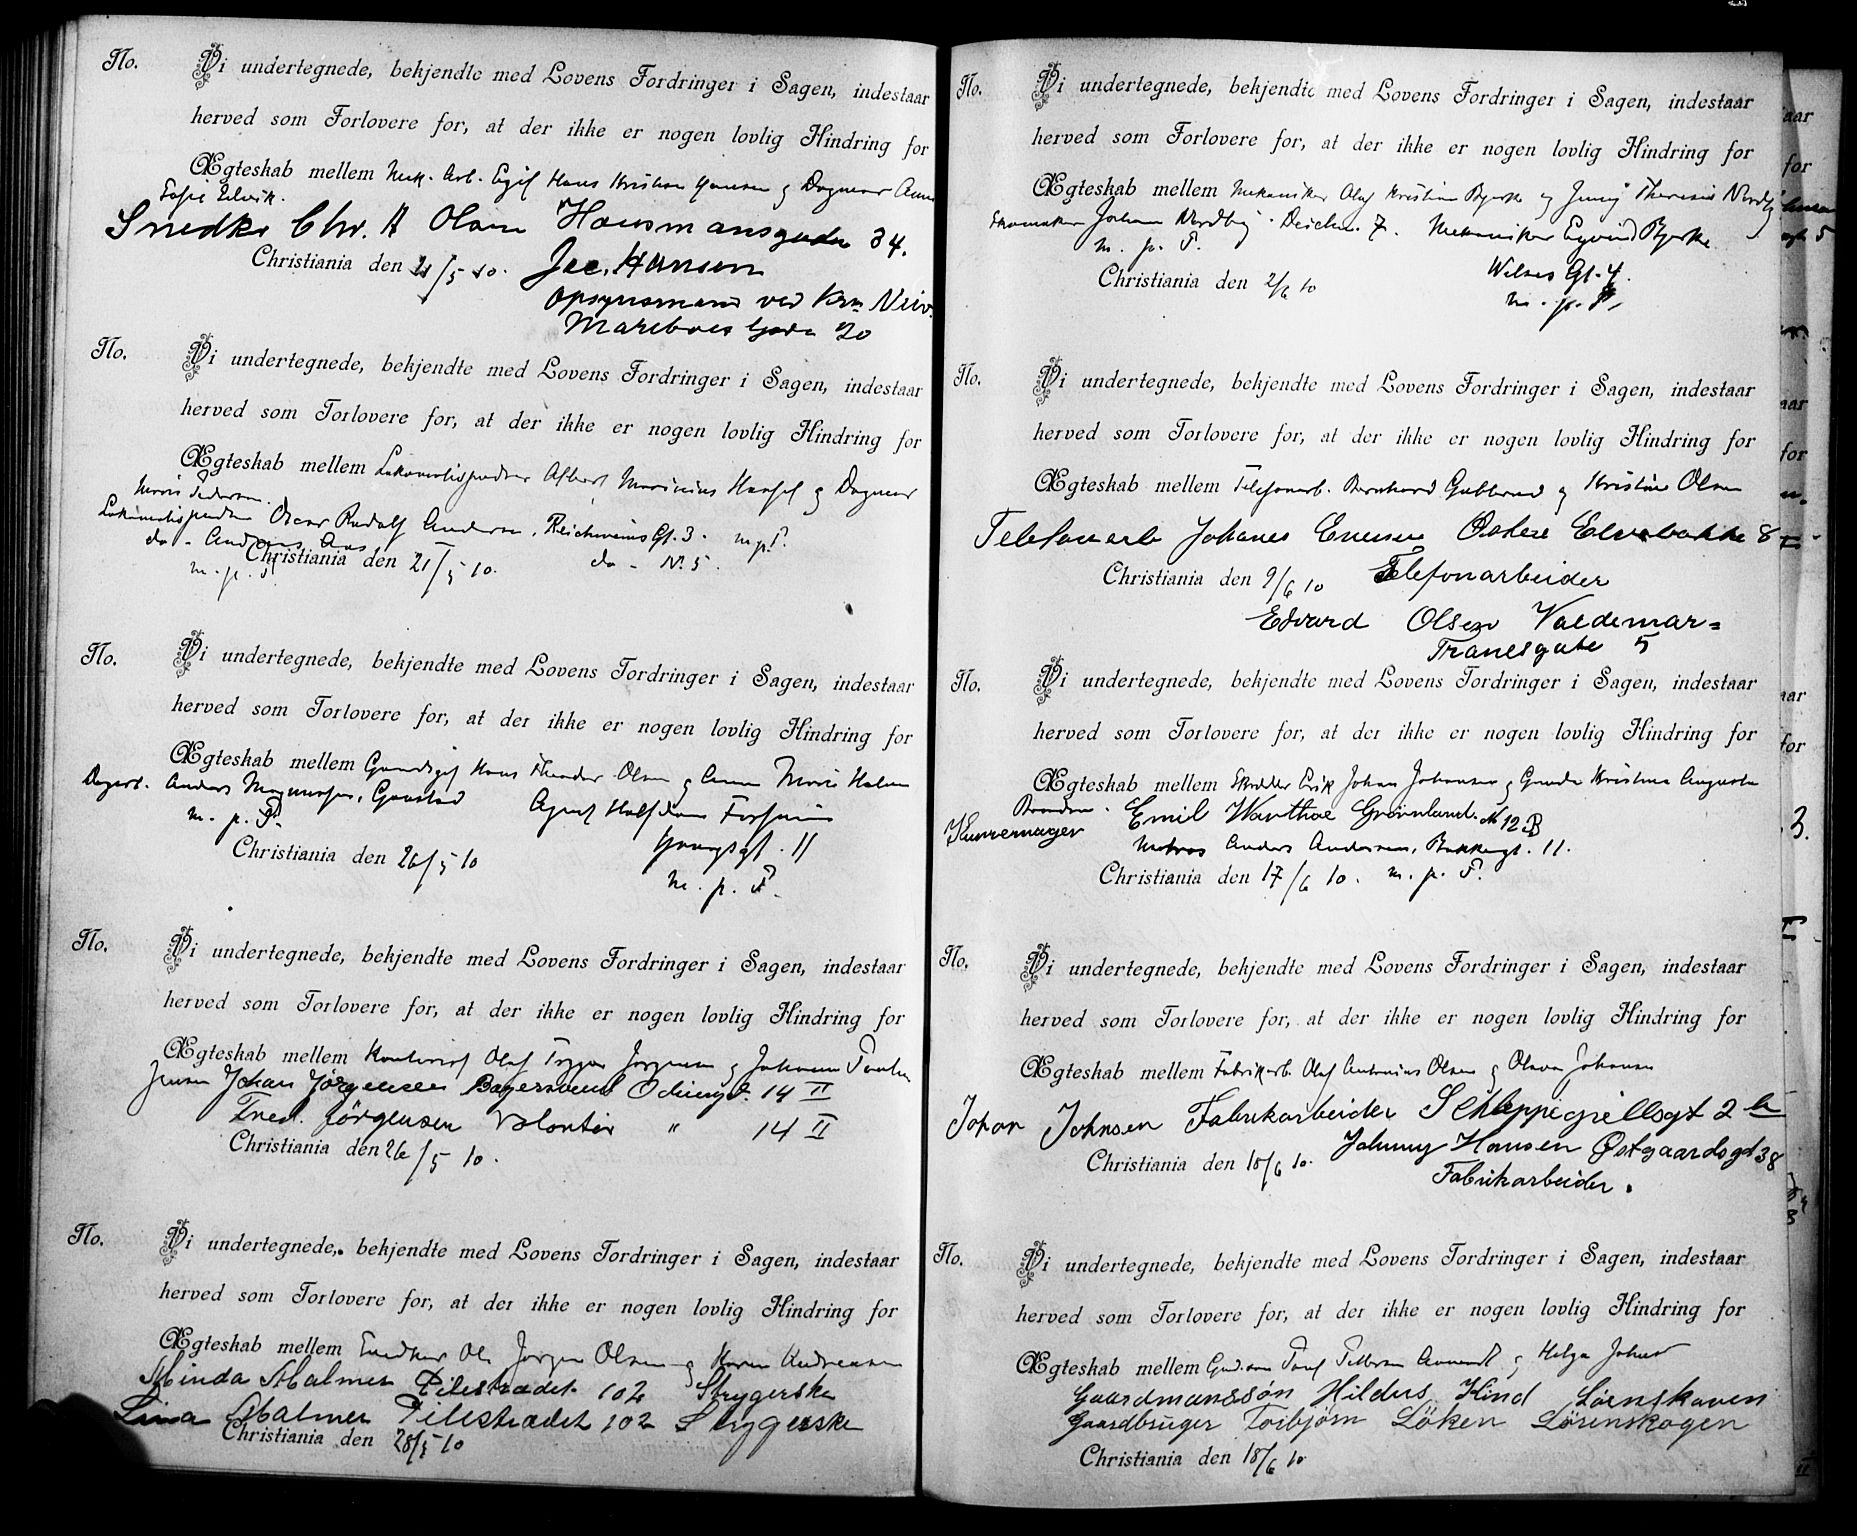 No. Vi undertegnede, bekjendte med Lovens Fordringer i Sagen, indestaar
herved som Forlovere for, at der ikke er nogen lovlig Hindring for
Ægteskab mellem Mek. Arb. Egil Hans Kristian Hansen og Dagmar Anna
Sofie Elvik.
Snedker Chr. A Olsen Hausmansgaden 34.
Christiania den 21/5 10. Jac. Hansen
Opsynsmand ved Krn
Mariboes Gade 20
No. Vi undertegnede, bekjendte med Lovens Fordringer i Sagen, indestaar
herved som Forlovere for, at der ikke er nogen lovlig Hindring for
Ægteskab mellem Lokomotivpudser Albert Marinius Hansen og Dagmar
Marie Pedersen.
Lokomotivpudser Oscar Rudolf Andersen, Reichweins Gt. 3. m.p.P.
do - Andreas Aas do - No. 5.
m. p. P.
Christiania den 21/5 10.
No. Vi undertegnede, bekjendte med Lovens Fordringer i Sagen, indestaar
herved som Forlovere for, at der ikke er nogen lovlig Hindring for
Ægteskab mellem Hans Theodor Olsen og Anna Marie Holm
Dagarb. Anders Magnussen, Gaustad Agent Halfdan
m. p. P. Youngsgt. 11
Christiania den 26/5 10 m. p. P.
No. Vi undertegnede, bekjendte med Lovens Fordringer i Sagen, indestaar
herved som Forlovere for, at der ikke er nogen lovlig Hindring for
Ægteskab mellem Kontorist Olaf Trygve Jørgensen og Johanne
Jensen Johan Jørgensen Bagersvend Odinsgt. 14 II
Fred. Jørgensen Volontør " 14 II
Christiania den 26/5 10.
No. Vi undertegnede, bekjendte med Lovens Fordringer i Sagen, indestaar
herved som Forlovere for, at der ikke er nogen lovlig Hindring for
Ægteskab mellem Snedker Ole Jørgen Olsen og Karen Andreasen
Minda Malmer Pilestrædet 102 Strygerske
Lina Malmer Pilestrædet 102 Strygerske
Christiania den 28/5 10
No. Vi undertegnede, bekjendte med Lovens Fordringer i Sagen, indestaar
herved som Forlovere for, at der ikke er nogen lovlig Hindring for
Ægteskab mellem Mekaniker Olaf Kristian Bjerke og Jenny Theresie Nordby
Skomaker Johan Nordby. Deichm. 7. Mekaniker Eyvind Bjerke
m. p. P. Wilses Gt. 4.
Christiania den 2/6 10 m. p. P.
No. Vi undertegnede, bekjendte med Lovens Fordringer i Sagen, indestaar
herved som Forlovere for, at der ikke er nogen lovlig Hindring for
Ægteskab mellem Telefonarb. Bernhard Gulbrand og Kristine Olsen
Telefonarb Johanes Enersen Østere Elvebakke 8
Christiania den 9/6 10 Telefonarbeider
Edvard Olsen Valdemar=
Tranesgate 5
No. Vi undertegnede, bekjendte med Lovens Fordringer i Sagen, indestaar
herved som Forlovere for, at der ikke er nogen lovlig Hindring for
Ægteskab mellem Skrædder Erik Johan Johansen og Gunda Kristina Augusta
Brandon.
Kurvemager Emil Warthoe Grønland. No 12 B
Matros Anders Andersen, Bakkegt. 11.
Christiania den 17/6 10. m. p. P.
No. Vi undertegnede, bekjendte med Lovens Fordringer i Sagen, indestaar
herved som Forlovere for, at der ikke er nogen lovlig Hindring for
Ægteskab mellem Fabrikarb. Olaf Antonius Olsen og Olava Johansen
Johan Johnsen Fabrikarbeider Schleppegrellsgt 2 b
Christiania den 18/6 10. Johnny Hansen Østgaardsgt 38
Fabrikarbeider.
No. Vi undertegnede, bekjendte med Lovens Fordringer i Sagen, indestaar
herved som Forlovere for, at der ikke er nogen lovlig Hindring for
Ægteskab mellem og Helga
Gaardmanssøn Hildus Kind Lørenskoven
Gaardbruger Torbjørn Løken Lørenskogen
Christiania den 18/6 10